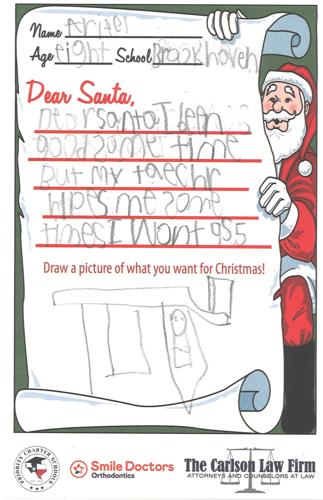 Name Ariel
Age eight School Brookhaven
Dear Santa,
Dear santa I been
good some time
But my taechr
hlpes me some
times I Wont 955
Draw a picture of what you want for Christmas!
PRIORITY CHARTER SCHOOLS
Smile Doctors
Orthodontics
The Carlson Law Firm
ATTORNEYS AND COUNSELORS AT LAW